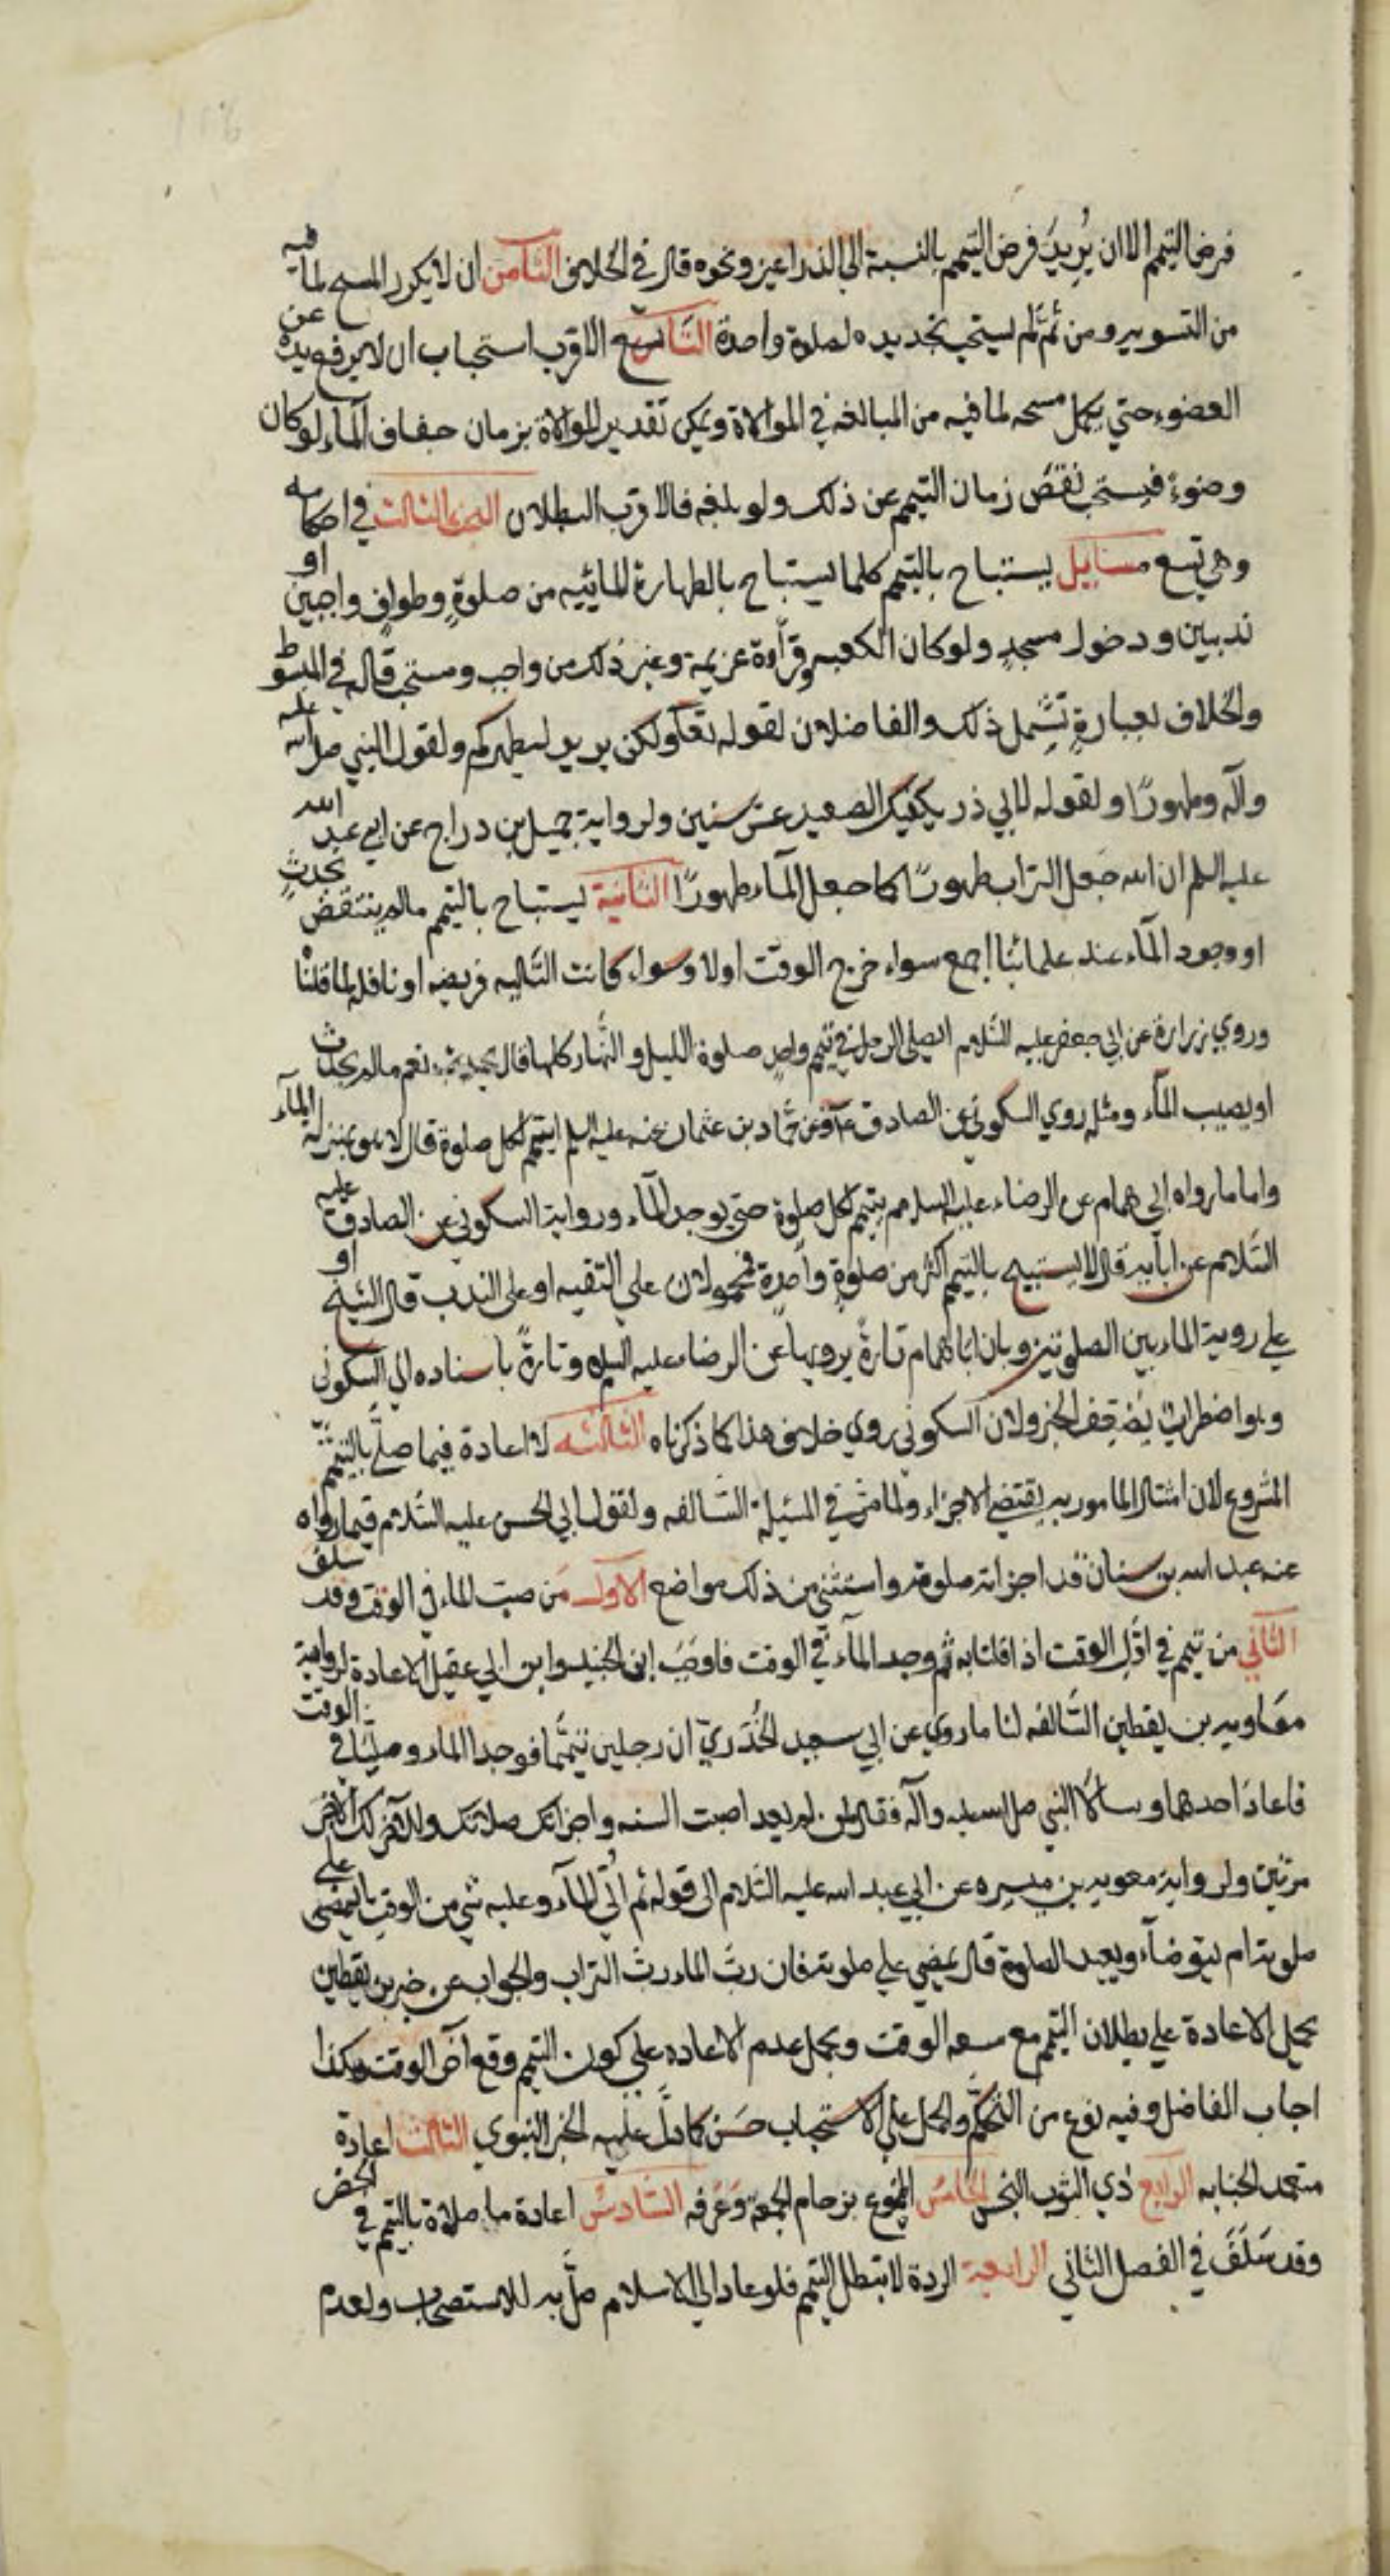 فرض التيمم الا ان يريد فرض التيمم بالنسبة الى الذراعين ونحوه قال في الخلاف الثامن ان لا يكرر المسح لما فيه
من التشويه ومن ثم لم يستحب تجديده لصلوة واحدة التاسع الاقرب استحباب ان لا يرفع يده عن
العضو حتي يكمل مسحه لما فيه من المبالغه في الموالاة ويمكن تقدير الموالاة بزمان جفاف الماء لو كان
وضوءً فيستحب نقص زمان التيمم عن ذلك ولو بلغه فالاقرب البطلان البحث الثالث في احكامه
وهي تسع مسايل يستباح بالتيمم كلما يستباح بالطهارة المائيه من صلوةٍ وطوافٍ واجبين او
ندبين ودخول مسجدٍ ولو كان الكعبه وقرآءة عزيمة وغير ذلك من واجب ومستحب قاله في المبسوط
والخلاف بعبارةٍ تشمل ذلك والفاضلان لقوله تعا ولكن يريد ليطهركم ولقول النبي صلى الله عليه
وآله وطهورًا ولقوله لابي ذر يكفيك الصعيد عشر سنين ولرواية جميل بن دراج عن ابي عبد الله
عليه السلم ان الله جعل التراب طهورًا كما جعل المآء طهورًا الثانية يستباح بالتيمم مالم ينتقض بحدثٍ
او وجود المآء عند علمائنا اجمع سواء خرج الوقت اولا وسواء كانت التاليه فريضه او نافله لما قلناه
وروي زرارة عن ابي جعفر عليه السلام ايصلى الرجل في تيمم واحدٍ صلوة الليل والنهار كلها قال نعم مالم يحدث
او يصيب المآء ومثله روي السكوني عن الصادق ع وعن حماد بن عثمان عنه عليه السلم ايتيمم لكل صلوة قال لا هو بمنزلة المآء
واما ما رواه ابي همام عن الرضاء عليه السلام يتيمم لكل صلوة حتى يوجد المآء ورواية السكوني عن الصادق عليه
السلام عن ابآيه قال لا يستبيح بالتيمم اكثر من صلوةٍ واحدة فمحمولان علي التقيه او على الندب قال الشيخ او
علي روية الماء بين الصلوتين وبان ابا همام تارةً يرويها عن الرضاء عليه السلم وتارةً باسناده الي السكوني
وهو اضطراب يضعف الخبر ولان السكوني روي خلاف هذا كما ذكرناه الثالثه لا اعادة فيما صلّي بالتيمم
المشروع لان امتثال المامور به يقتضي الاجزاء ولما مرّ في المسئلة السالفه ولقول ابي الحسن عليه السلام فيما رواه
عنه عبد الله بن سنان قد اجزاته صلوته واستثني من ذلك مواضع الاول من صب الماء في الوقت وقد سلف
الثاني من تيمم في اول الوقت اذا قلنا به ثم وجد المآء في الوقت فاوجب ابن الجنيد وابن ابي عقيل الاعادة لرواية
معاويه بن يقطين السالفه لنا ما روي عن ابي سعيد الخدريّ ان رجلين تيمما فوجدا الماء وصليا في الوقت
فاعاد احدهما وسالا النبي صلى الله عليه وآله فقال لمن لم يعد اصبت السنه واجزاتك صلاتك وللآخر لك الاجر
مرتين ولرواية معويه بن ميسره عن ابي عبد الله عليه السلام الى قوله ثم اتى المآء وعليه شي من الوقت ايمضي على
صلوته ام يتوضآء ويعيد الصلوة قال يمضي علي صلوته فان ربّ الماء ربّ التراب والجواب عن خبر بن يقطين
بحمل الاعادة علي بطلان التيمم مع سعه الوقت وبحمل عدم الاعاده علي كون التيمم وقع آخر الوقت وبكذا
اجاب الفاضل وفيه نوع من التحكّم والحمل علي الاستحباب حسن كما دلّ عليه الخبر النبوي الثالث اعادة
متعمد الجنابه الرابع ذي الثوب النجس الخامس الممنوع بزحام الجمعة وعرفه السادس اعادة ما صلاه بالتيمم في الحضر
وقد سَلَفَ في الفصل الثاني الرابعة الردة لا تبطل التيمم فلو عاد الي الاسلام صلّي به للاستصحاب ولعدم